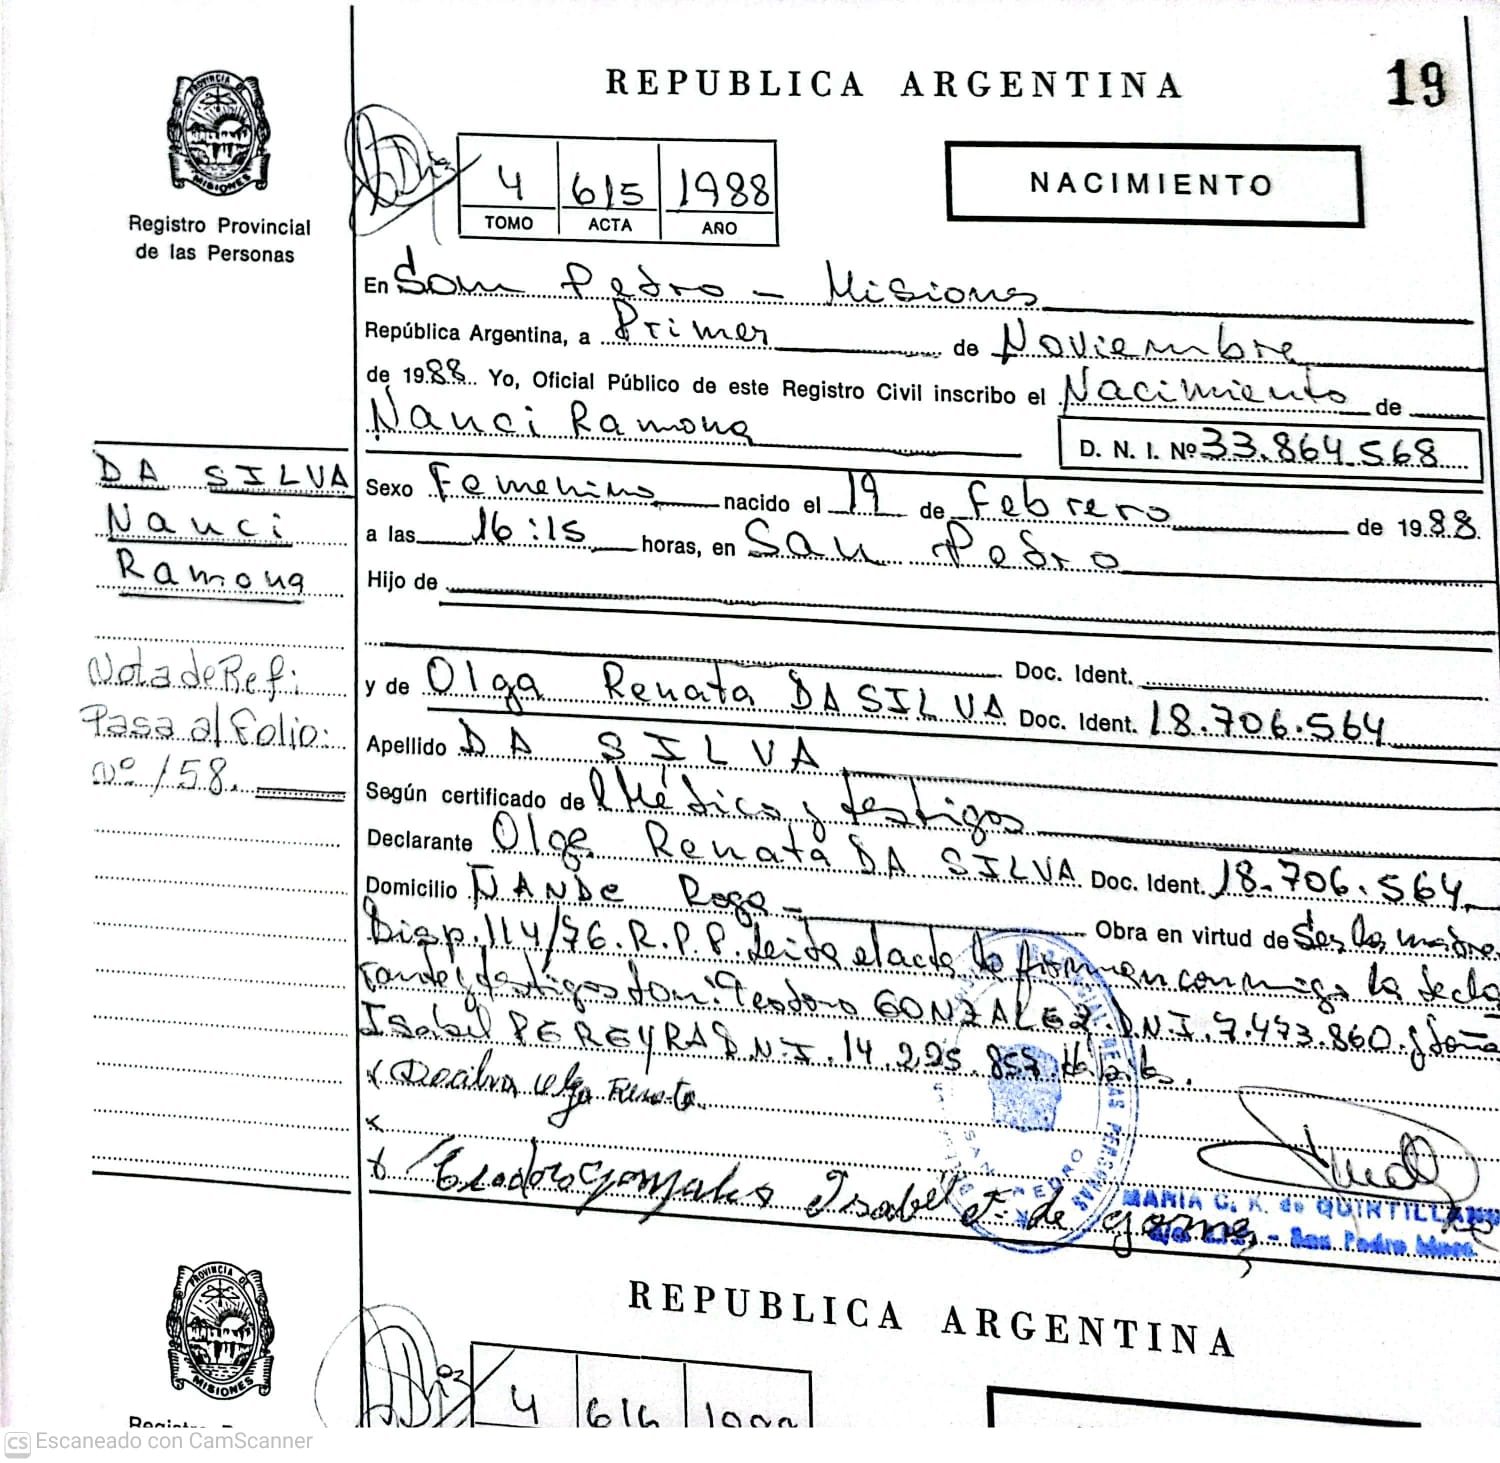 REPUBLICA ARGENTINA
19
PROVINCIA DE
MISIONES
Registro Provincial
de las Personas
4 615 1988
TOMO ACTA AÑO
NACIMIENTO
En San Pedro - Misiones
República Argentina, a Primer de Noviembre
de 1988. Yo, Oficial Público de este Registro Civil inscribo el Nacimiento de
Nanci Ramona
D. N. I. Nº 33.864.568
DA SILVA
Nanci
Ramona
Sexo Femenino nacido el 19 de Febrero de 1988.
a las 16:15 horas, en San Pedro
Hijo de
Doc. Ident.
Nota de Ref:
Pasa al Folio:
Nº 158.
y de Olga Renata DA SILVA Doc. Ident. 18.706.564
Apellido DA SILVA
Según certificado de Médico y testigos
Declarante Olga Renata DA SILVA Doc. Ident. 18.706.564
Domicilio ÑANDE Roga - Obra en virtud de Ser la madre.
Disp. 114/76. R.P.P. Leída el acta la firman conmigo la decla
rante y testigos don: Teodoro GONZALEZ. D.N.I. 7.473.860. y doña
Isabel PEREYRA D.N.I. 14.225.857.
x Dasilva Olga Renata
x
x Teodoro Gonzalez Isabel P. de
SAN PEDRO
MARIA C. K. de QUINTILLAN
San Pedro Mnes.
REPUBLICA ARGENTINA
PROVINCIA DE
MISIONES
4 616 1988
CS Escaneado con CamScanner